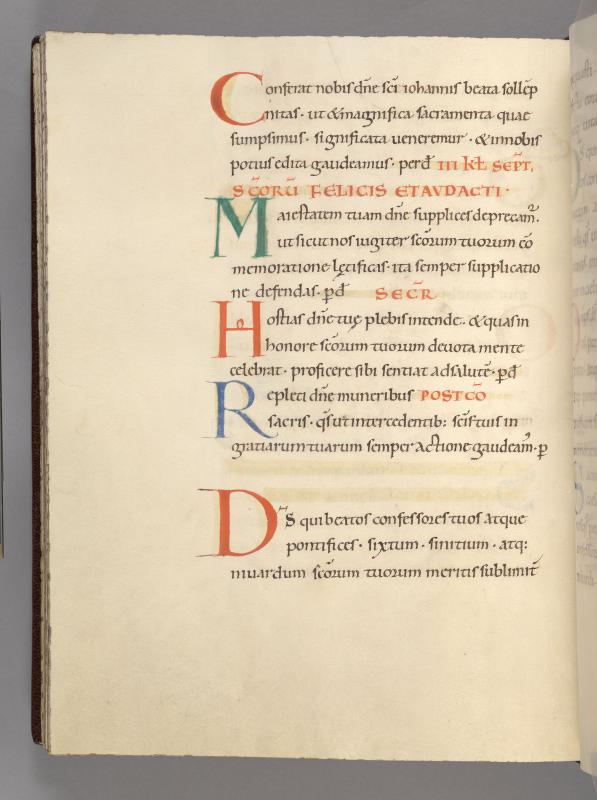 Conferat nobis dñe sci iohannis beata sollẽp
nitas · ut & magnifica sacramenta quae
sumpsimus · significata ueneremur · & in nobis
potius edita gaudeamus · per dñ III KL SEPT.
SCORŪ FELICIS ET AVDACTI ·
Maiestatem tuam dñe supplices deprecam̃.
ut sicut nos iugiter scõrum tuorum cõ
memoratione lętificas · ita semper supplicatio
ne defendas · p̃ dñ SECR
Hostias dñe tuę plebis intende · & quas in
honore scõrum tuorum deuota mente
celebrat · proficere sibi sentiat ad salutẽ · p̃ dñ
Repleti dñe muneribus POSTCÕ
sacris · qs ut intercedentib: scis tuis in
gratiarum tuarum semper actione gaudeam̃ · p
DS qui beatos confessores tuos atque
pontifices · sixtum · sinitium · atq:
niuardum scõrum tuorum meritis sublimit̃